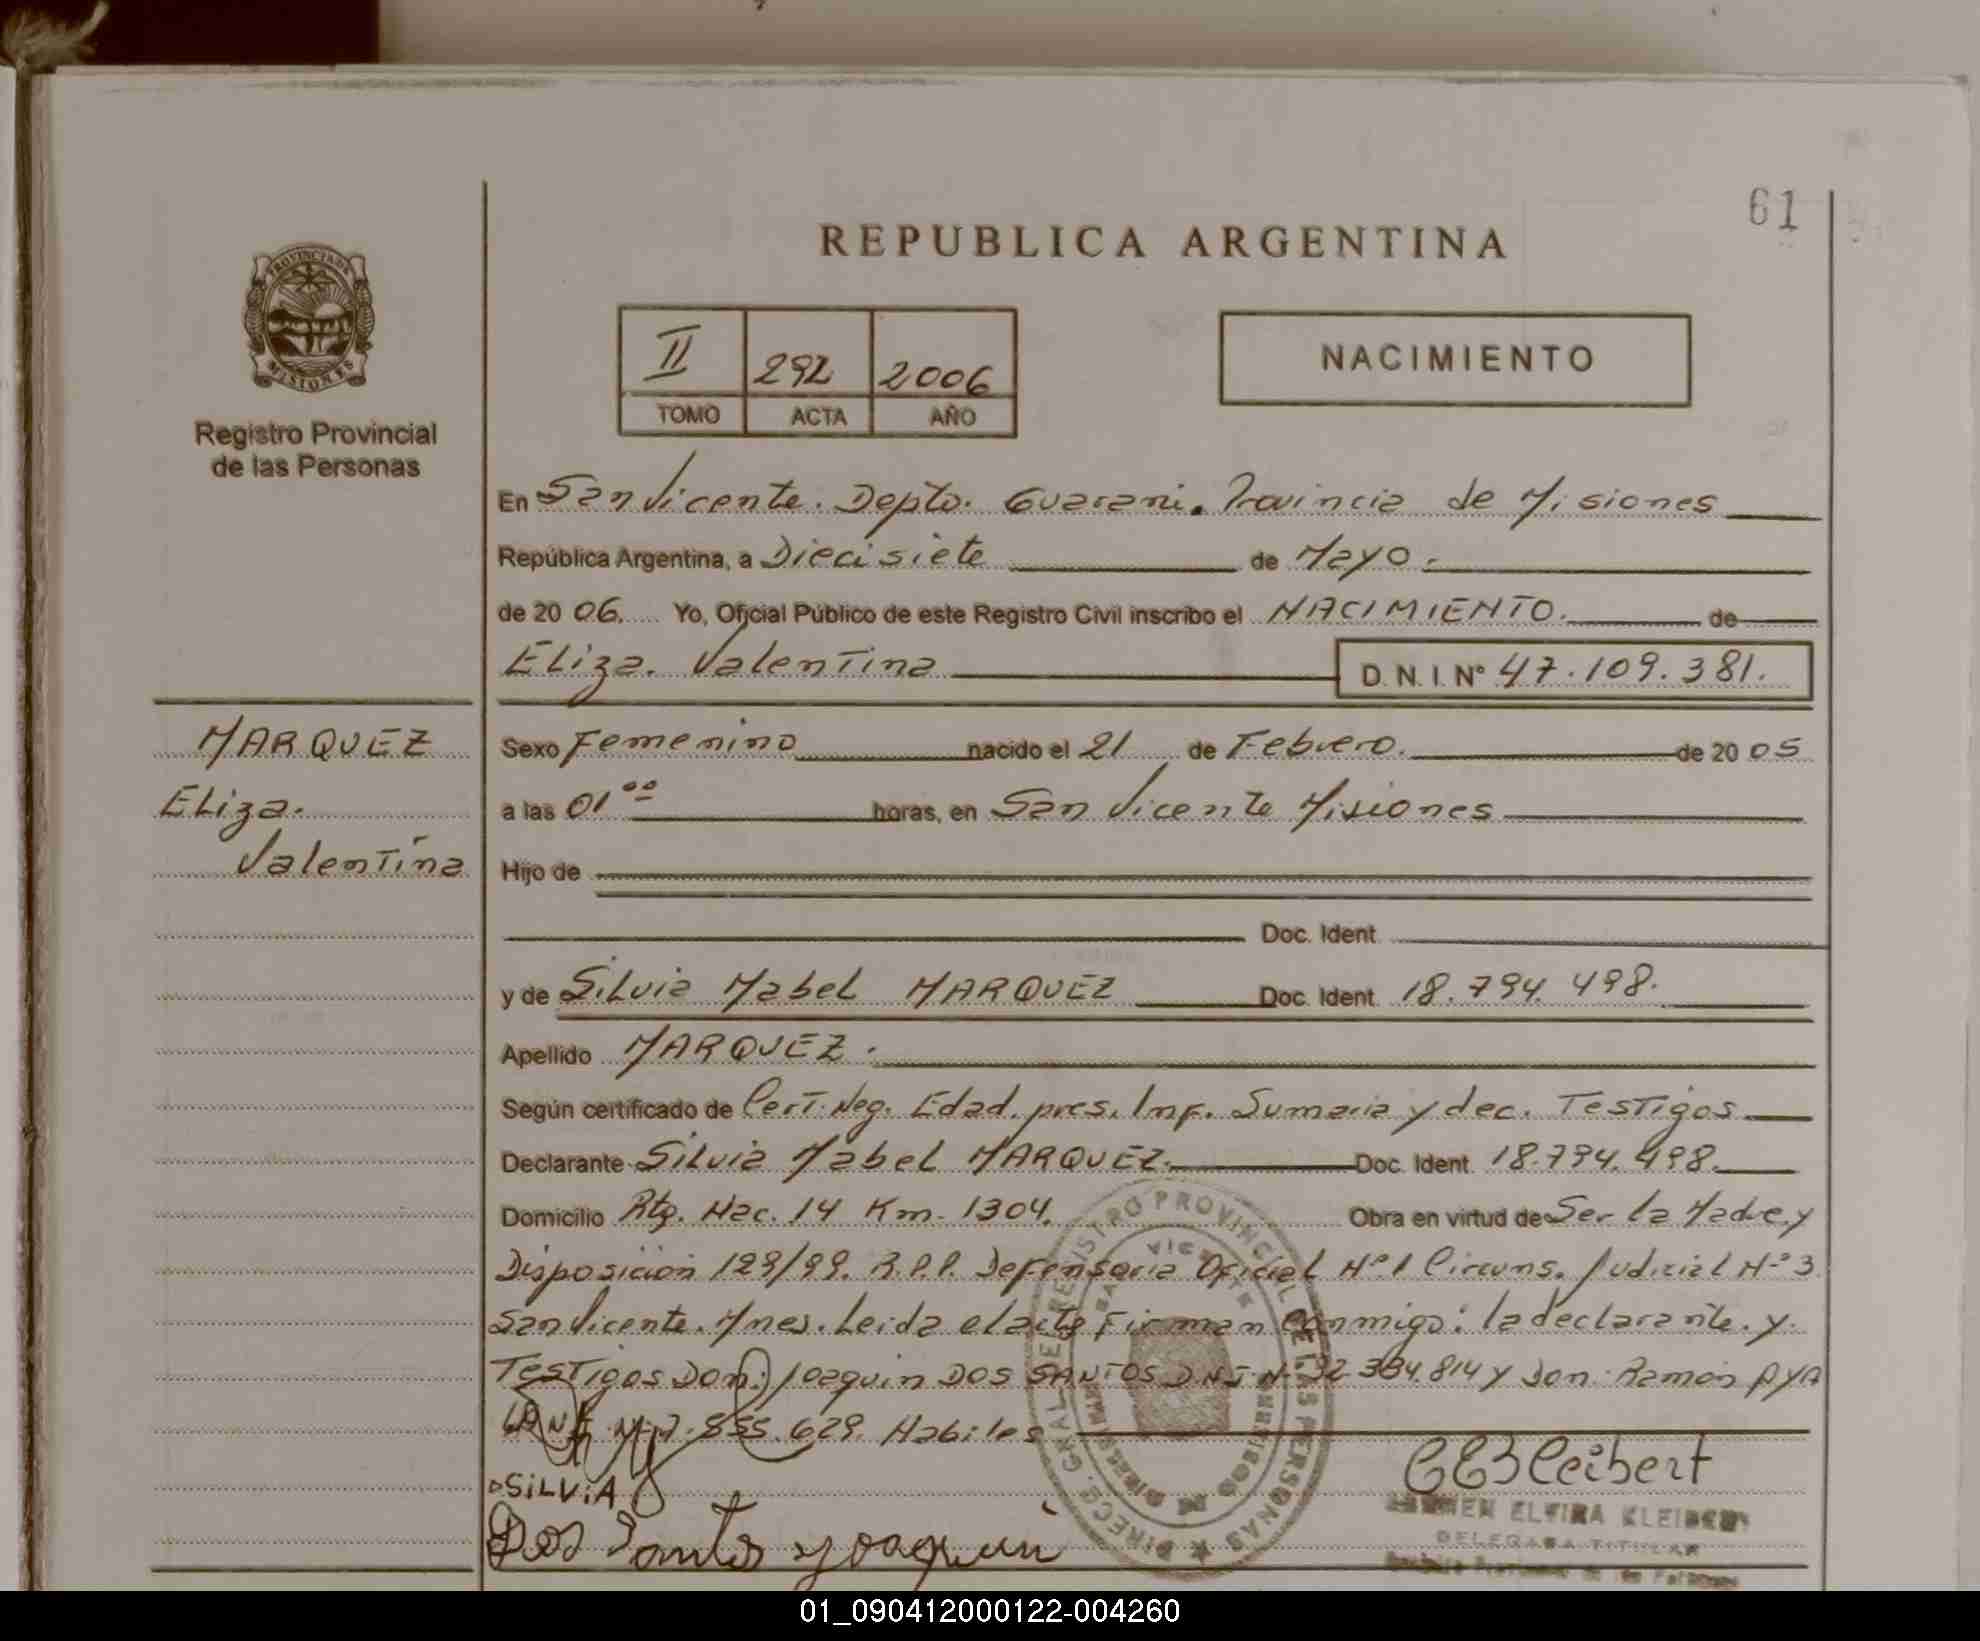 61
REPUBLICA ARGENTINA
PROVINCIA DE
MISIONES
Registro Provincial
de las Personas
II 292 2006
TOMO ACTA AÑO
NACIMIENTO
En San Vicente. Depto. Guarani. Provincia de Misiones
República Argentina, a Diecisiete de Mayo.
de 20 06. Yo, Oficial Público de este Registro Civil inscribo el NACIMIENTO. de
Eliza. Valentina D.N.I. Nº 47.109.381.
MARQUEZ
Eliza.
Valentina
Sexo Femenino nacido el 21 de Febrero. de 20 05
a las 01 00 horas, en San Vicente Misiones
Hijo de
Doc. Ident.
y de Silvia Mabel MARQUEZ Doc. Ident. 18.794.498.
Apellido MARQUEZ.
Según certificado de Cert. Neg. Edad. pres. Inf. Sumaria y dec. Testigos
Declarante Silvia Mabel MARQUEZ. Doc. Ident. 18.794.498.
Domicilio Rta. Nac. 14 Km. 1304. Obra en virtud de Ser la Madre. y
Disposición 129/99. R.P.P. Defensoria Oficial Nº1 Circuns. Judicial Nº3
San Vicente. Mnes. Leida el acta Firman conmigo: la declarante. y.
Testigos Don: Joaquin DOS SANTOS DNI N 32.384.814 y Don: Ramón AYA
LA 7.855.629. Habiles
SiLViA
Dos Santos Joaquin
CEKleibert
CARMEN ELVIRA KLEIBERT
DELEGADA TITULAR
Registro Provincial de las Personas
DIRECC. GRAL. REGISTRO PROVINCIAL DE LAS PERSONAS
SAN VICENTE
MISIONES
01_090412000122-004260